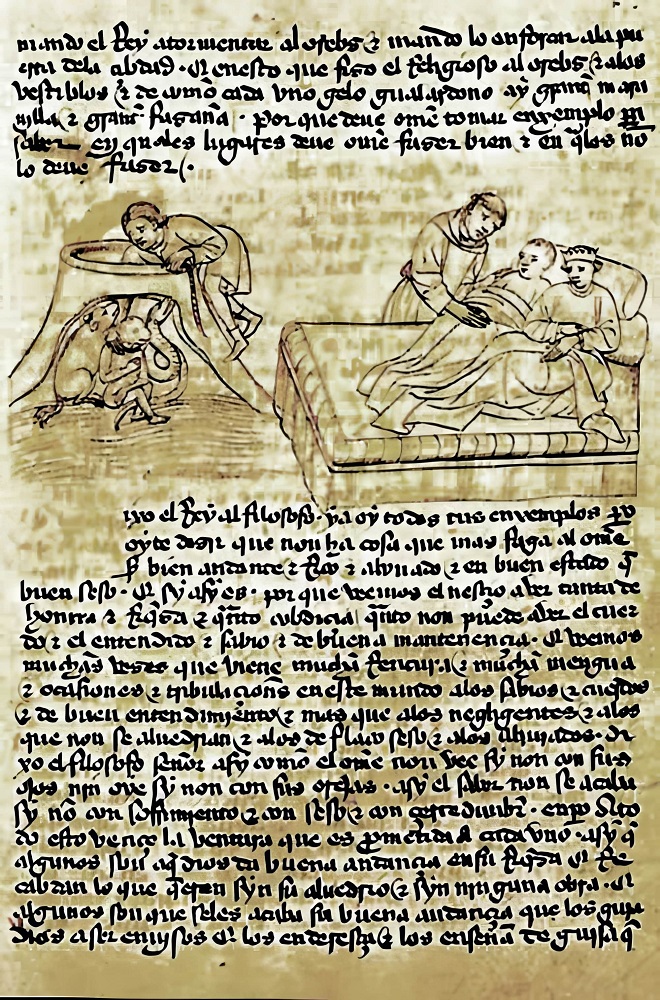 mando el Rey atormentar al orebs & mando lo enforcar ala pu
erta dela cibdad. Et enesto que fizo el Religioso al orebs & alos
vestiblos & de como cada vno gelo gualardono ay grant mara
uilla & grant fazaña. por que deue ome tomar enxemplo
saber en quales lugares deue ome fazer bien & en q̃les no
lo deue fazer.
xo el Rey al filosofo. ya oy todos tus enxemplos
oyte dezir que non ha cosa que mas faga al ome
bien andante & & en buen estado q̃
buen seso. Et sy asy es. por que veemos el nesçio aver tanta de
honrra & & q̃nto cobdiçia q̃nto non puede aver el cuer
do & el entendido & sabio & de buena mantenençia. Et veemos
muchas vezes que viene mucha Rencura & mucha mengua
& ocasiones & tribulaçiõns eneste mundo alos sabios & cuerdos
& de buen entendimiento & mas que alos negligentes & alos
que non se aluedrian & alos de flaco seso & alos . di
xo el filosofo señor asy como el ome non vee sy non con sus
ojos nin oye sy non con sus orejas. asy el saber non se acaba
sy nõ con sofrimiento & con seso & con . to
do esto vençe la ventura que es prometida a cada vno. asy q̃
algunos son aq̃ dios da buena andança ensu Et Re
cabdan lo que q̃eren syn su aluedrio & syn ninguna obra. Et
algunos son que seles acaba su buena andança que los guia
dios aser enuisos Et los enderesça & los enseña de guisa q̃